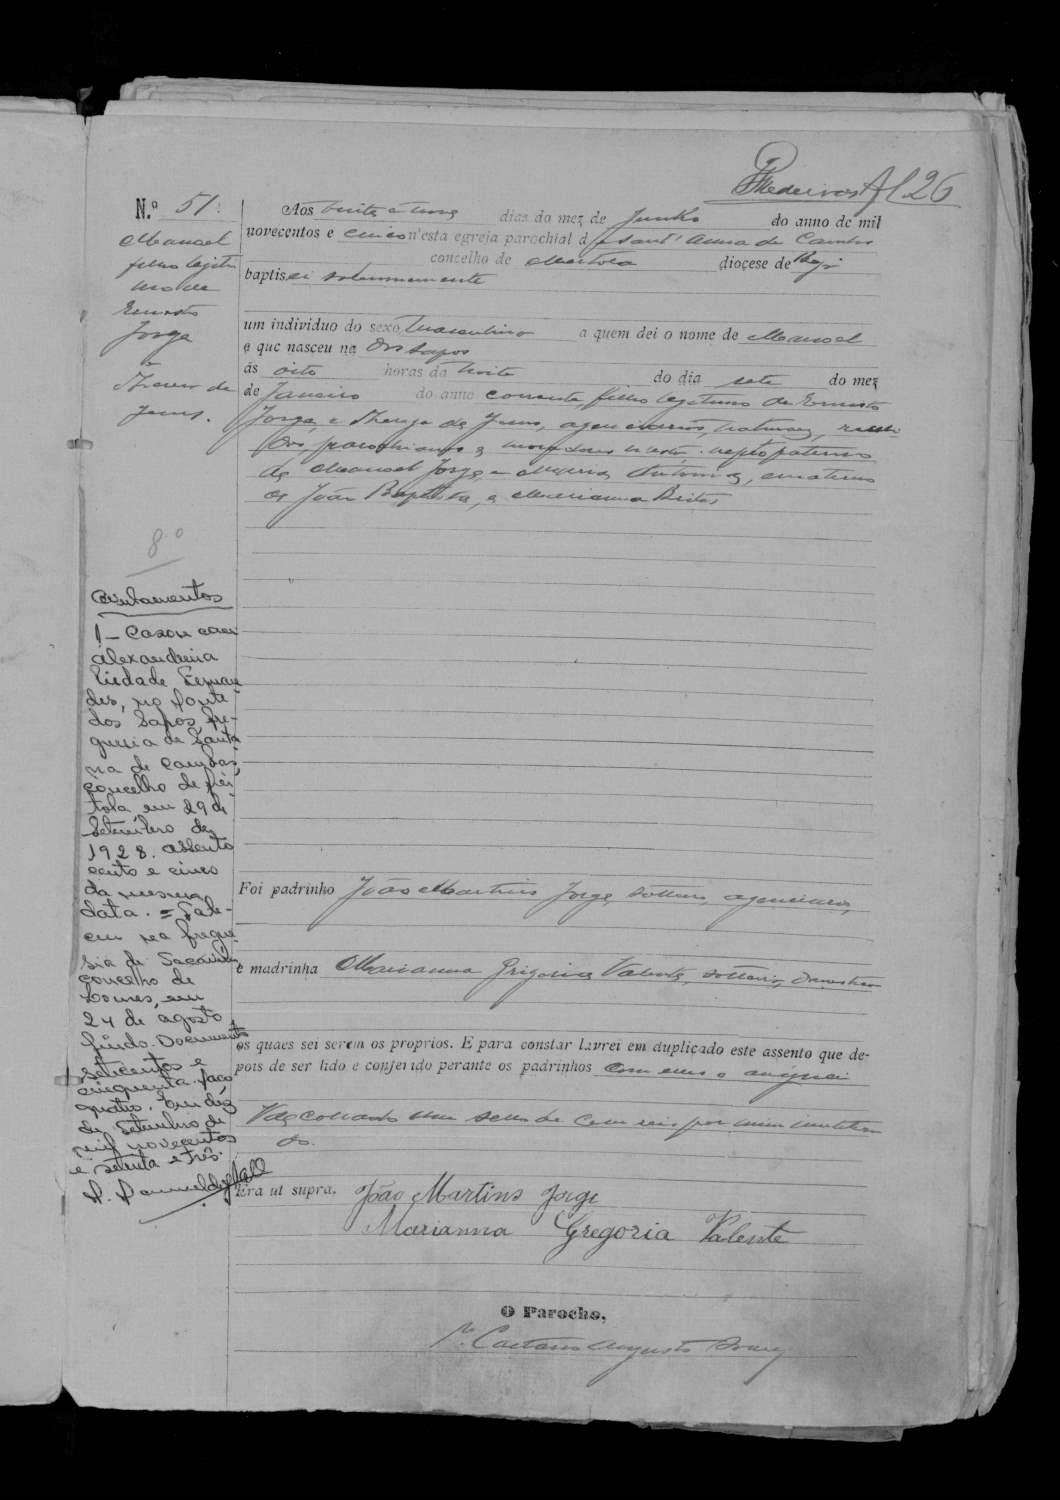 Medeiros Fl 26
N.º 51
Manoel
filho legiti
mo de
Ernesto
Jorge
e
Thereza de
Jesus.
Aos vinte e tres dias do mez de Junho do anno de mil
novecentos e cinco n'esta egreja parochial de Sant'Anna de Cambas
concelho de Mertola diocese de Beja
baptisei solemnemente
um individuo do sexo masculino a quem dei o nome de Manoel
e que nasceu na dos Sapos
ás oito horas da noite do dia sete do mez
de Janeiro do anno corrente, filho legitimo de Ernesto
Jorge, e Thereza de Jesus, naturaes, recebi
dos, parochianos e moradores n'esta. neto paterno
de Manoel Jorge e Maria Antonia, e materno
de João Baptista, e Marianna
8º
Averbamentos
1 - Casou com
Alexandrina
Piedade Fernan
des, no Monte
dos Sapos, fre-
guesia de Santa
na de Cambas,
concelho de Mér
tola em 29 de
Setembro de
1928. Assento
cento e cinco
da mesma
data. = Fale-
ceu na fregue-
sia de Sacavém
concelho de
Loures, em
24 de agosto
findo. Documento
setecentos e
cinquenta. maço
quatro. Em dez
de Setembro de
mil novecentos
e setenta e três.
Foi padrinho João Martins Jorge, solteiro,
e madrinha Marianna Gregoria Valente, solteira, domestica
os quaes sei serem os proprios. E para constar lavrei em duplicado este assento que de-
pois de ser lido e conferido perante os padrinhos com elles o assignei
Vae collado um sello de cem reis por mim inutilisa
do.
Era ut supra.
João Martins Jorge
Marianna Gregoria Valente
O Parocho,
P.e Caetano Augusto